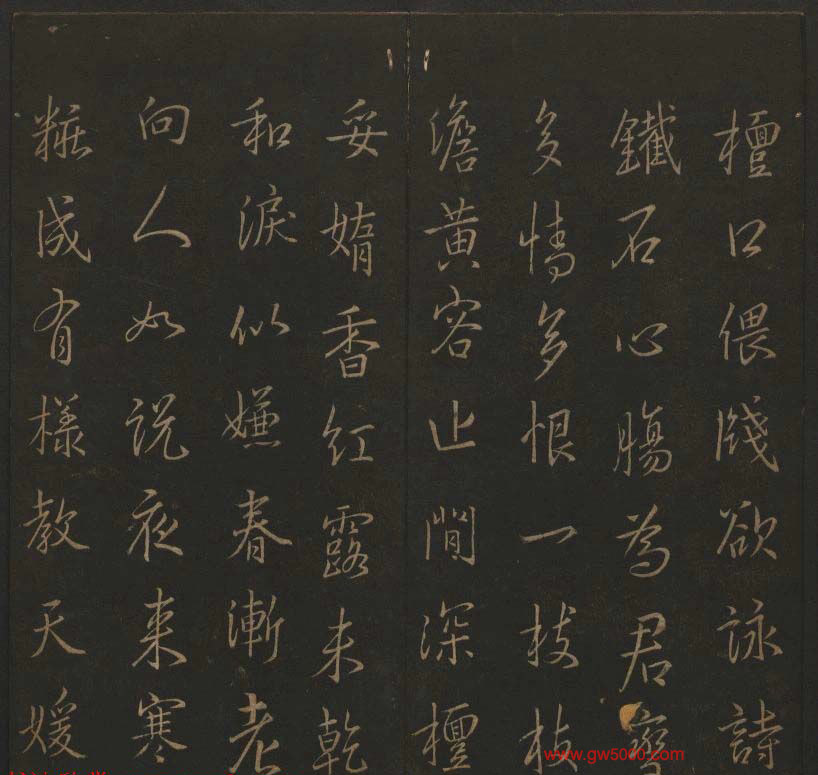 檀口偎牋欲詠詩
鐵石心腸為君
多情多恨一枝枝
澹黃容止閒深檀
妥媠香紅露未乾
和淚似嫌春漸老
向人如説夜来寒
糚成有樣教天媛
www.gw5000.com